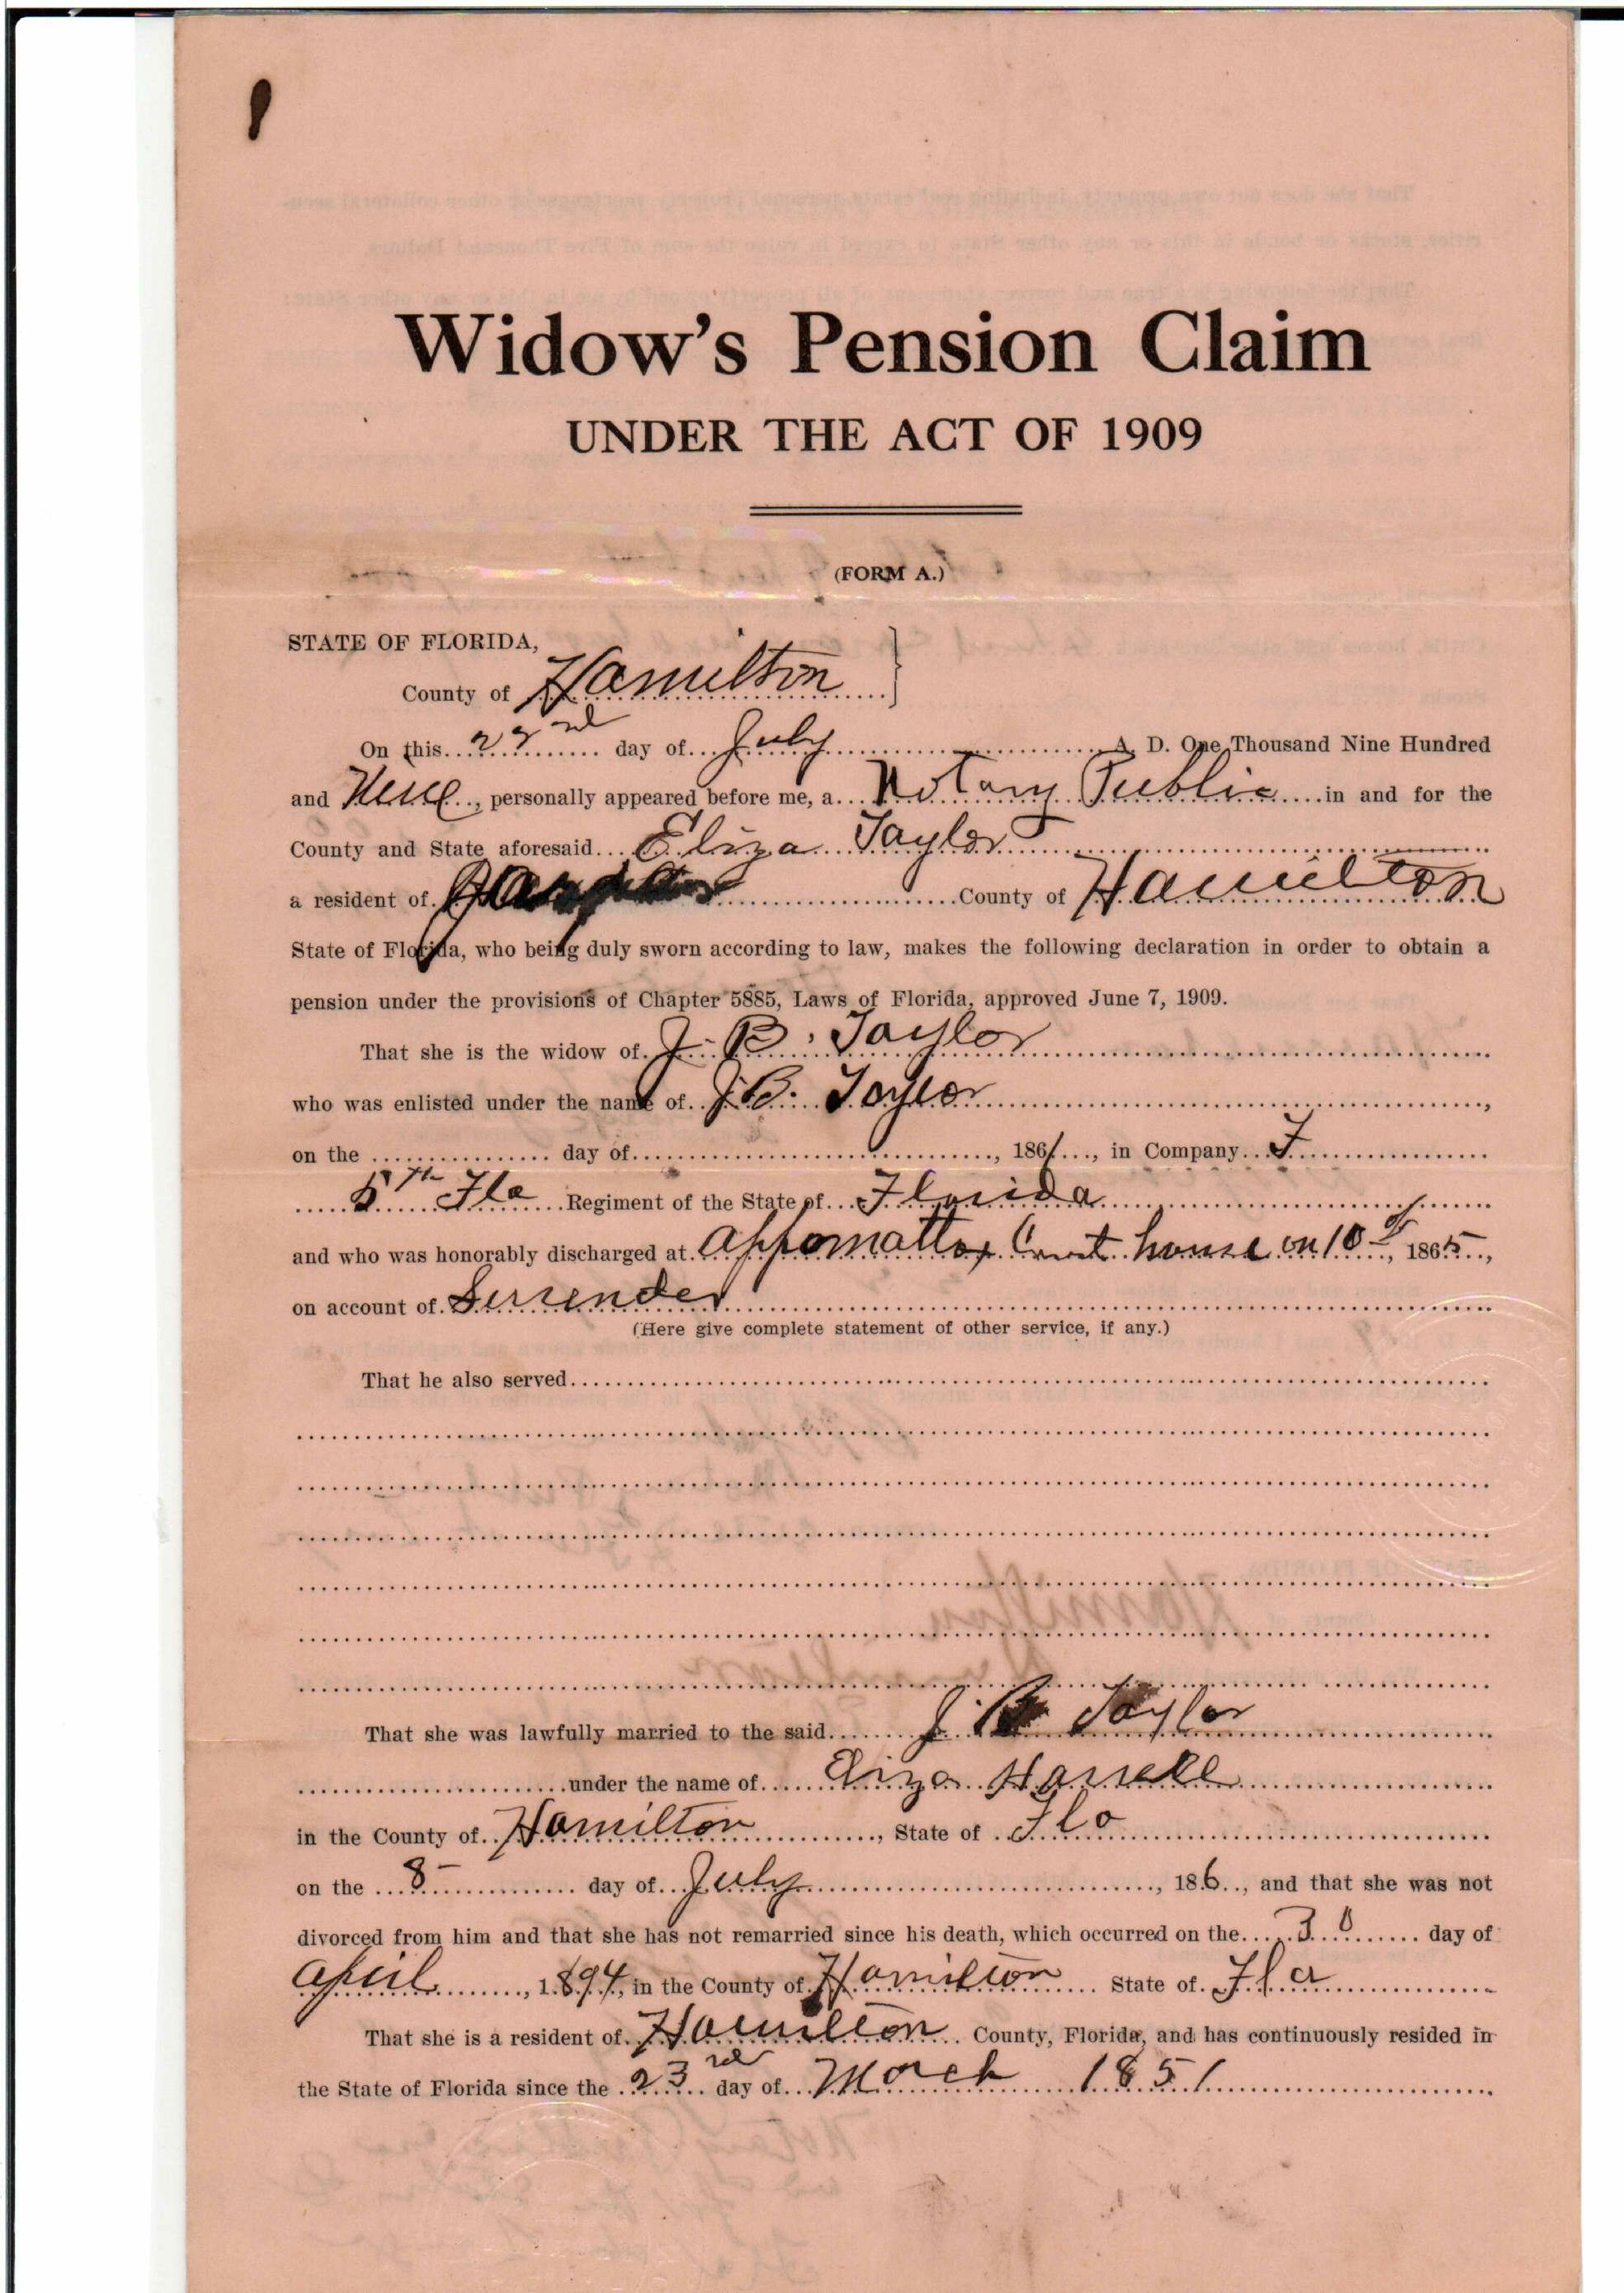 Widow's Pension Claim
UNDER THE ACT OF 1909
(FORM A.)
STATE OF FLORIDA,
County of Hamilton
On this 22nd day of July A. D. One Thousand Nine Hundred
and Nine, personally appeared before me, a Notary Public in and for the
County and State aforesaid Eliza Taylor
a resident of County of Hamilton
State of Florida, who being duly sworn according to law, makes the following declaration in order to obtain a
pension under the provisions of Chapter 5885, Laws of Florida, approved June 7, 1909.
That she is the widow of J. B. Taylor
who was enlisted under the name of J. B. Taylor,
on the day of, 1861, in Company F
5th Fla Regiment of the State of Florida
and who was honorably discharged at Appomattox Court house on 10, 1865,
on account of Surrender
(Here give complete statement of other service, if any.)
That he also served
That she was lawfully married to the said J. B. Taylor
under the name of Eliza Harrell
in the County of Hamilton, State of Fla
on the 8 day of July, 186, and that she was not
divorced from him and that she has not remarried since his death, which occurred on the 30 day of
April, 1894, in the County of Hamilton State of Fla
That she is a resident of Hamilton County, Florida, and has continuously resided in
the State of Florida since the 23rd day of March 1851